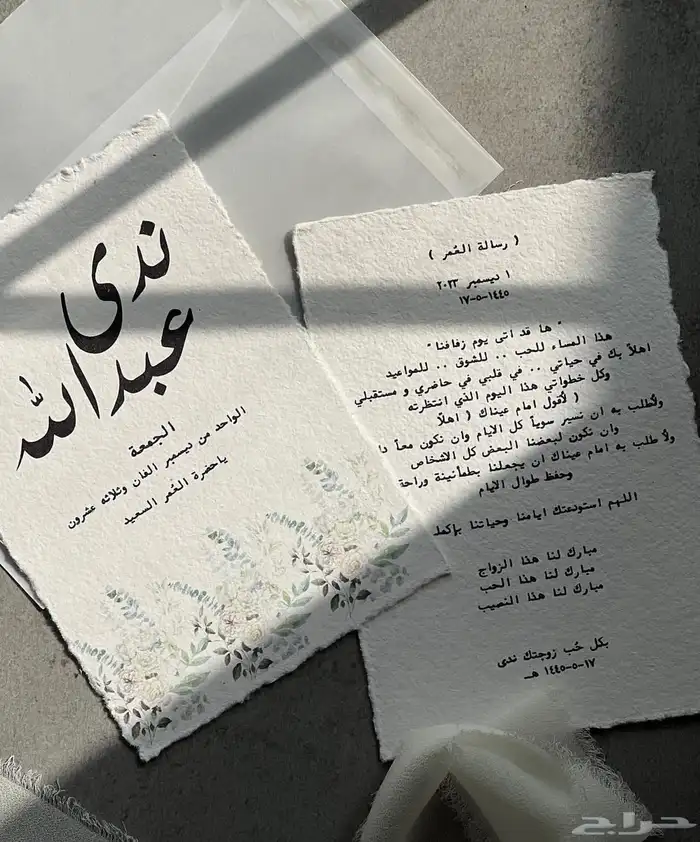 ندى
عبدالله
الجمعة
الواحد من ديسمبر الفان وثلاثه عشرون
ياحضرة العُمر السعيد
( رسالة العُمر )
١ ديسمبر ٢٠٢٣
١٧-٥-١٤٤٥
" ها قد اتى يوم زفافنا "
هذا المساء للحب .. للشوق .. للمواعيد
اهلاً بك في حياتي .. في قلبي في حاضري و مستقبلي
وكل خطواتي هذا اليوم الذي انتظرته
( لأقول امام عيناك ( اهلاً
ولأطلب به ان نسير سوياً كل الايام وان نكون معاً
وان نكون لبعضنا البعض كل الاشخاص
ولأ طلب به امام عيناك ان يجعلنا بطمأنينة وراحة
وحفظ طوال الايام
اللهم استودعتك ايامنا وحياتنا
مبارك لنا هذا الزواج
مبارك لنا هذا الحب
مبارك لنا هذا النصيب
بكل حُب زوجتك ندى
١٧-٥-١٤٤٥ هـ
حراج